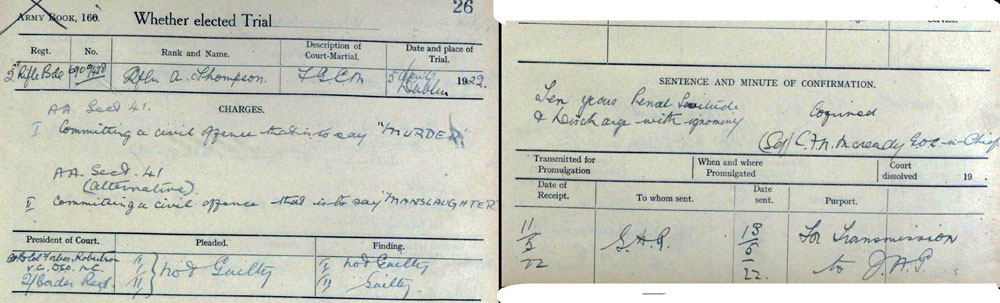 26
ARMY BOOK, 160. Whether elected Trial
Regt. No. Rank and Name. Description of Court-Martial. Date and place of Trial.
2nd Rifle Bde 6909438 Rflm A. Thompson. F.G.C.M. 5 April 1922.
Dublin
CHARGES.
AA. Sect 41.
I Committing a civil offence that is to say "MURDER"
AA. Sect 41
(alternative).
II Committing a civil offence that is to say "MANSLAUGHTER"
President of Court. Pleaded. Finding.
Lt Col Forbes-Robertson I I Not Guilty
V.C., DSO. M.C. Not Guilty
2/Border Regt. II II Guilty.
SENTENCE AND MINUTE OF CONFIRMATION.
Ten years Penal Servitude
& Discharge with ignominy
Confirmed
(Sd) C.F.N. Mcready G.O.C-in-Chief.
Transmitted for Promulgation When and where Promulgated Court dissolved 19
Date of Receipt. To whom sent. Date sent. Purport.
11/5/22 13/5/22. For Transmission
to J.A.G.